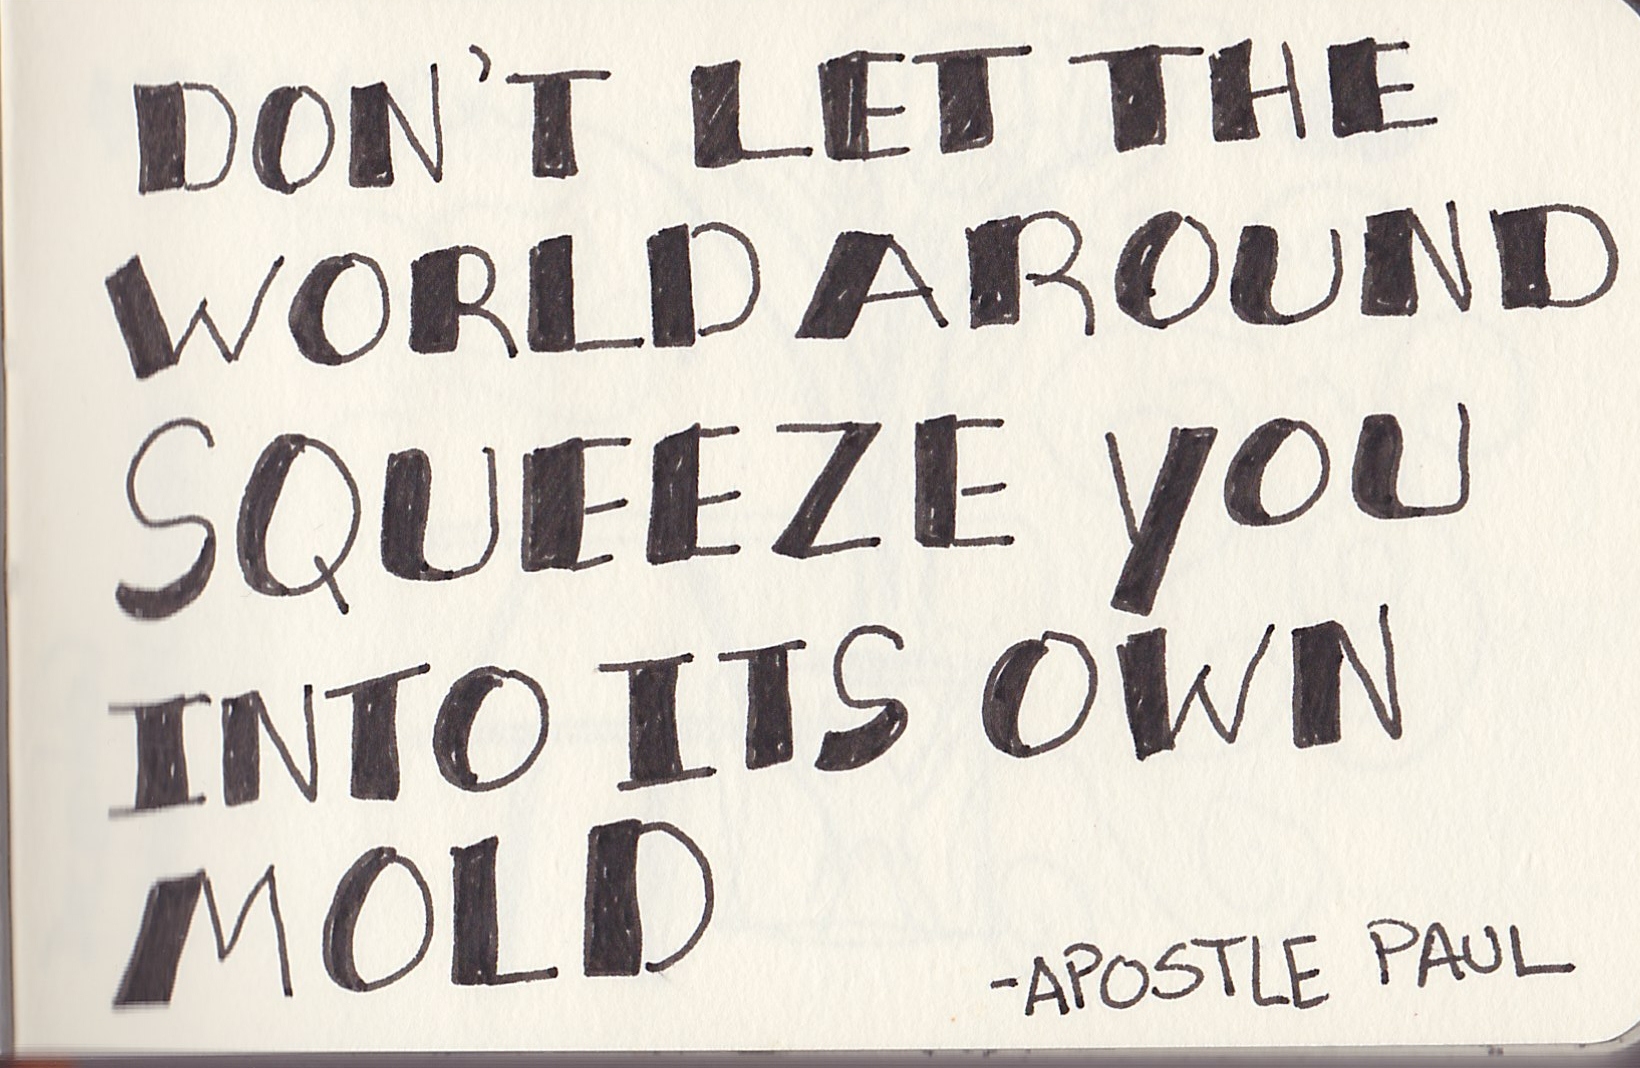 DON'T LET THE
WORLD AROUND
SQUEEZE YOU
INTO ITS OWN
MOLD
-APOSTLE PAUL